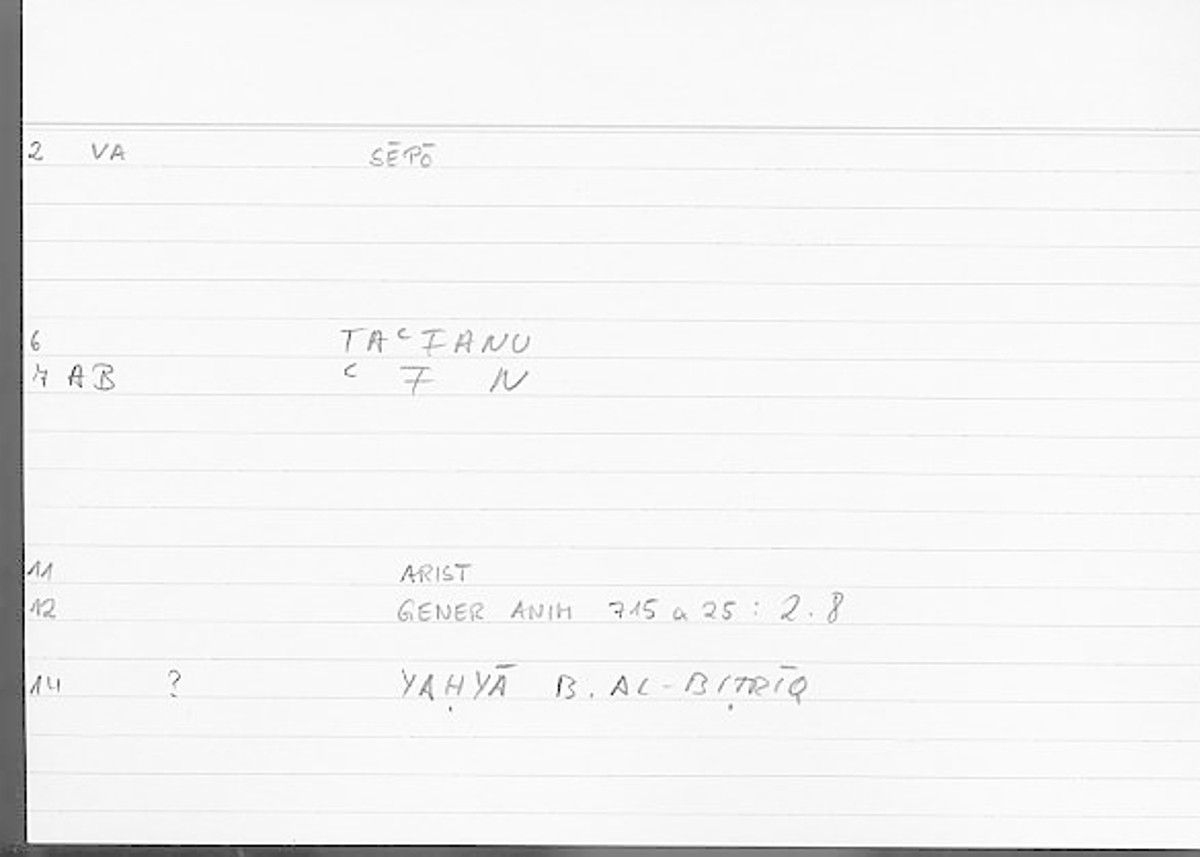 2 VA SĒPŌ
6 TAᶜFANU
7 AB ᶜ F N
11 ARIST
12 GENER ANIM 715 a 25 : 2.8
14 ? YAḤYĀ B. AL-BIṬRĪQ